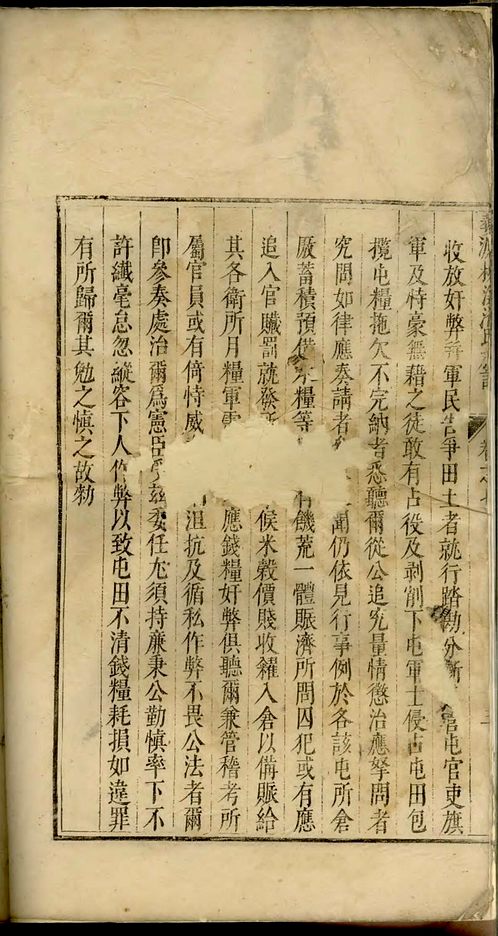 收放奸弊并軍民告爭田土者就行踏勘分斷 官屯官吏旗
軍及恃豪無藉之徒敢有占役及剥削下屯軍士侵占屯田包
攬屯糧拖欠不完納者悉聽爾從公追究量情懲治應拏問者
究問如律應奏請者 聞仍依見行事例於各該屯所倉
厫蓄積預備米糧等 有饑荒一體賑濟所問囚犯或有應
追入官贓罰就發 候米穀價賤收糴入倉以備賑給
其各衛所月糧軍 應錢糧奸弊俱聽爾兼管稽考所
屬官員或有倚恃威 沮抗及循私作弊不畏公法者爾
卽參奏處治爾爲憲臣受兹委任尤須持廉秉公勤慎率下不
許纖毫怠忽縱容下人作弊以致屯田不清錢糧耗損如違罪
有所歸爾其勉之慎之故勅